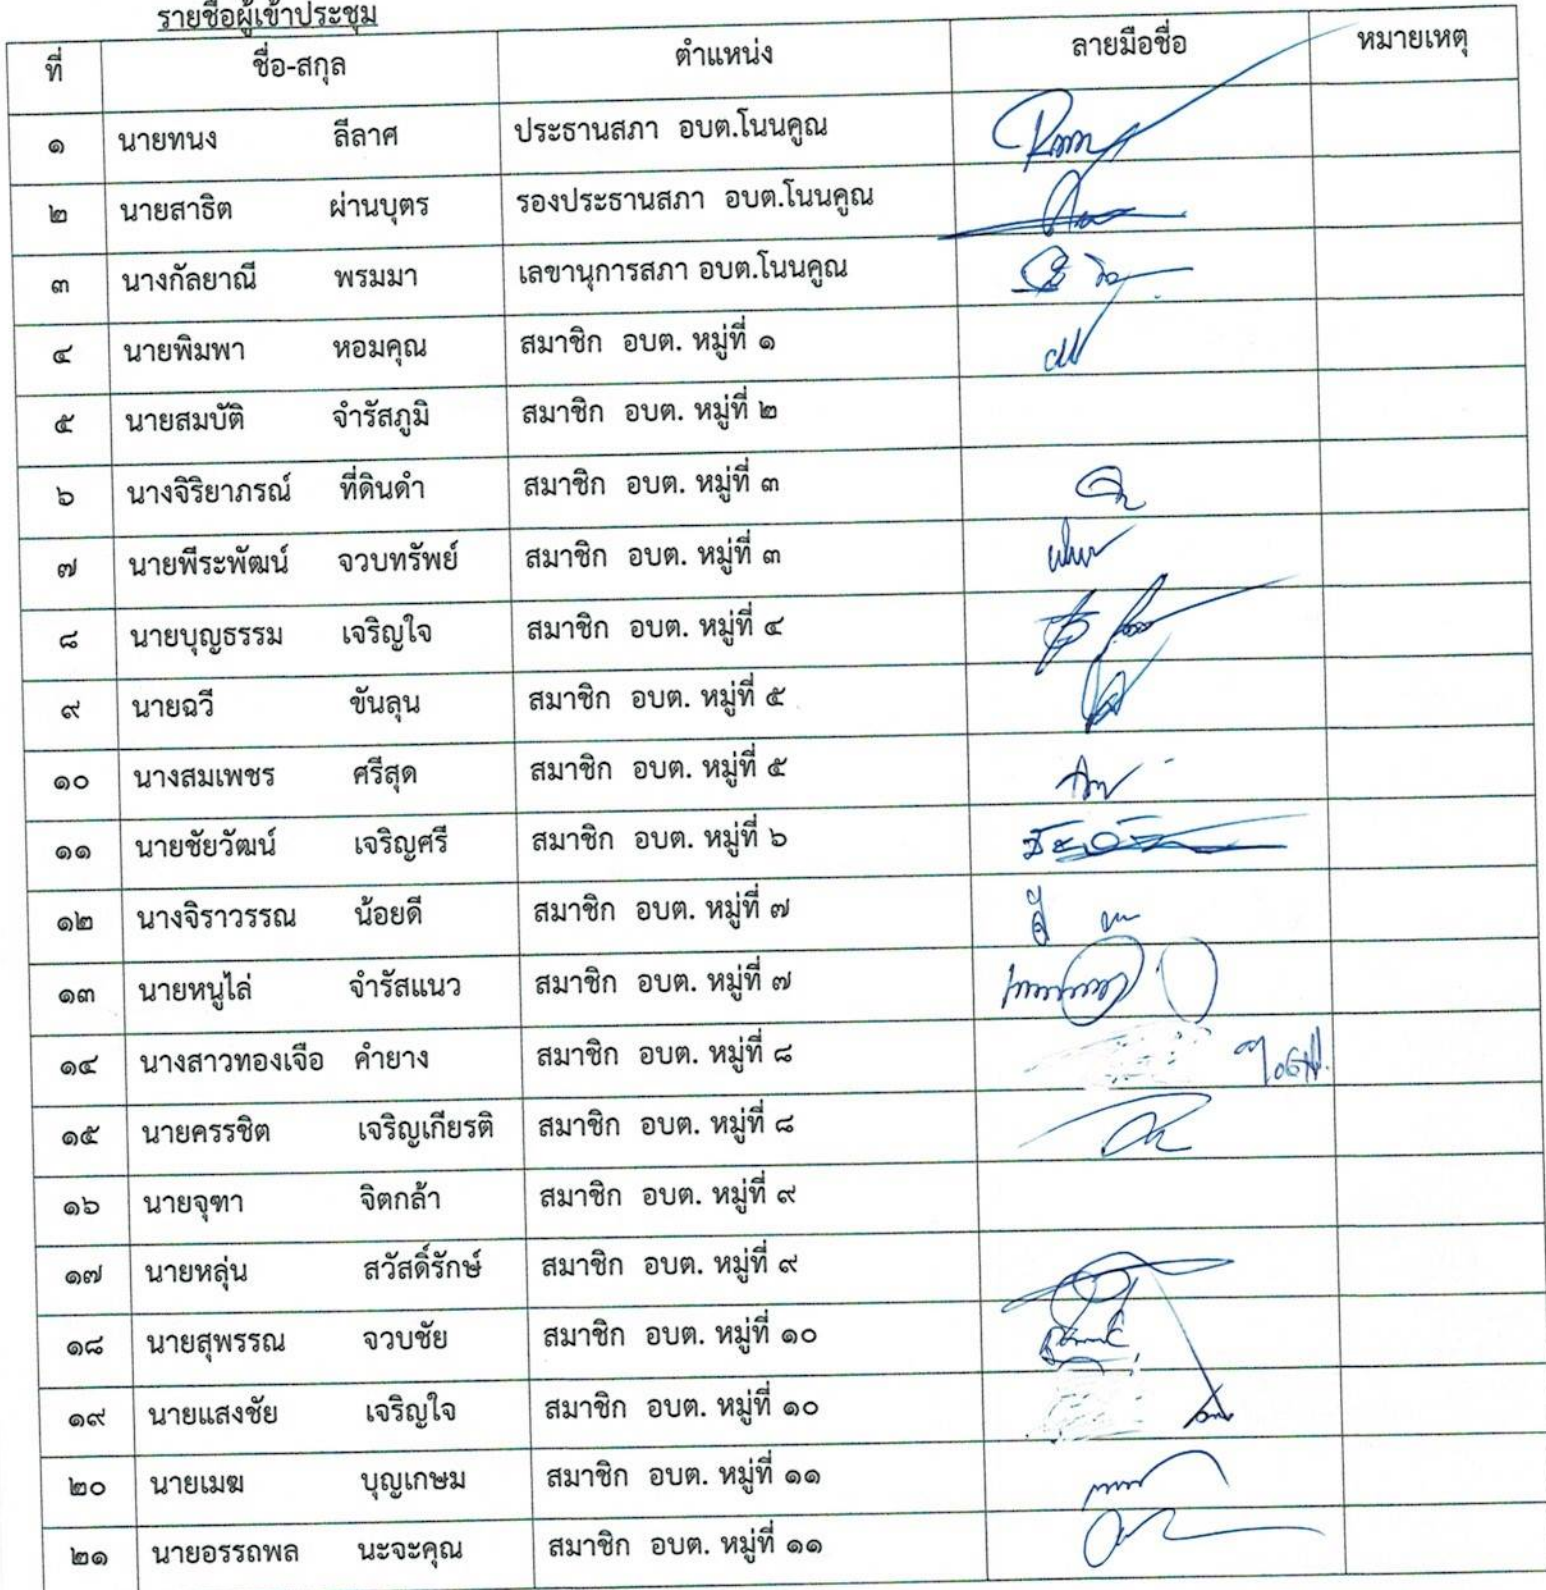 รายชื่อผู้เข้าประชุม
ที่ ชื่อ-สกุล ตำแหน่ง ลายมือชื่อ หมายเหตุ
๑ นายทนง ลีลาศ ประธานสภา อบต.โนนคูณ
๒ นายสาธิต ผ่านบุตร รองประธานสภา อบต.โนนคูณ
๓ นางกัลยาณี พรมมา เลขานุการสภา อบต.โนนคูณ
๔ นายพิมพา หอมคุณ สมาชิก อบต. หมู่ที่ ๑
๕ นายสมบัติ จำรัสภูมิ สมาชิก อบต. หมู่ที่ ๒
๖ นางจิริยาภรณ์ ที่ดินดำ สมาชิก อบต. หมู่ที่ ๓
๗ นายพีระพัฒน์ จวบทรัพย์ สมาชิก อบต. หมู่ที่ ๓
๘ นายบุญธรรม เจริญใจ สมาชิก อบต. หมู่ที่ ๔
๙ นายฉวี ขันลุน สมาชิก อบต. หมู่ที่ ๕
๑๐ นางสมเพชร ศรีสุด สมาชิก อบต. หมู่ที่ ๕
๑๑ นายชัยวัฒน์ เจริญศรี สมาชิก อบต. หมู่ที่ ๖
๑๒ นางจิราวรรณ น้อยดี สมาชิก อบต. หมู่ที่ ๗
๑๓ นายหนูไล่ จำรัสแนว สมาชิก อบต. หมู่ที่ ๗
๑๔ นางสาวทองเจือ คำยาง สมาชิก อบต. หมู่ที่ ๘
๑๕ นายครรชิต เจริญเกียรติ สมาชิก อบต. หมู่ที่ ๘
๑๖ นายจุฑา จิตกล้า สมาชิก อบต. หมู่ที่ ๙
๑๗ นายหลุ่น สวัสดิ์รักษ์ สมาชิก อบต. หมู่ที่ ๙
๑๘ นายสุพรรณ จวบชัย สมาชิก อบต. หมู่ที่ ๑๐
๑๙ นายแสงชัย เจริญใจ สมาชิก อบต. หมู่ที่ ๑๐
๒๐ นายเมฆ บุญเกษม สมาชิก อบต. หมู่ที่ ๑๑
๒๑ นายอรรถพล นะจะคุณ สมาชิก อบต. หมู่ที่ ๑๑